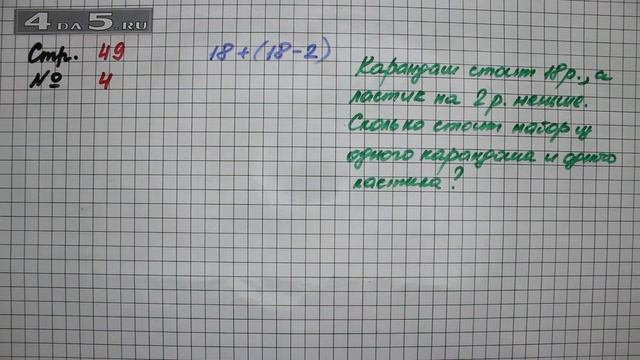 4 DA 5.RU
Стр. 49
№ 4
18+(18-2)
Карандаш стоит 18р., а
ластик на 2р. меньше.
Сколько стоит набор из
одного карандаша и одного
ластика?